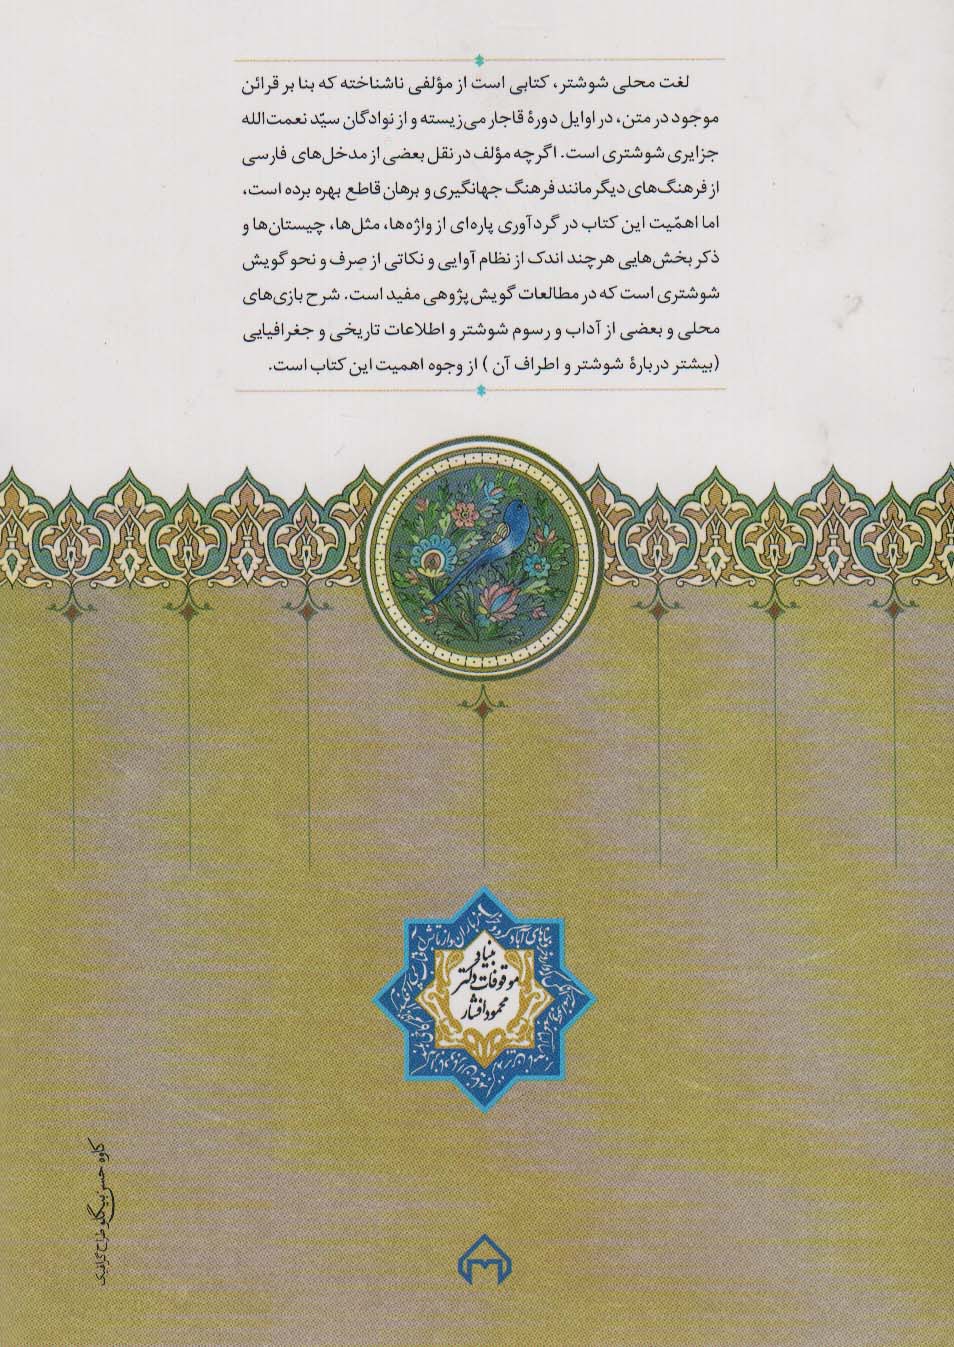 لغت محلی شوشتر، کتابی است از مؤلفی ناشناخته که بنا بر قرائن
موجود در متن، در اوایل دورهٔ قاجار می‌زیسته و از نوادگان سیّد نعمت‌الله
جزایری شوشتری است. اگرچه مؤلف در نقل بعضی از مدخل‌های فارسی
از فرهنگ‌های دیگر مانند فرهنگ جهانگیری و برهان قاطع بهره برده است،
اما اهمّیت این کتاب در گردآوری پاره‌ای از واژه‌ها، مثل‌ها، چیستان‌ها و
ذکر بخش‌هایی هرچند اندک از نظام آوایی و نکاتی از صرف و نحو گویش
شوشتری است که در مطالعات گویش‌پژوهی مفید است. شرح بازی‌های
محلی و بعضی از آداب و رسوم شوشتر و اطلاعات تاریخی و جغرافیایی
(بیشتر دربارهٔ شوشتر و اطراف آن ) از وجوه اهمیت این کتاب است.
بنیاد
موقوفات دکتر
محمود افشار
کاوه حسن بیگلو طراح گرافیک